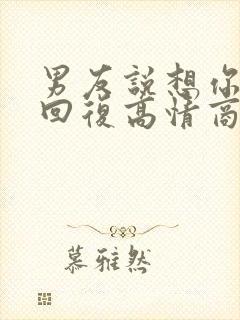 男友說想你
回復高情商
慕雅然